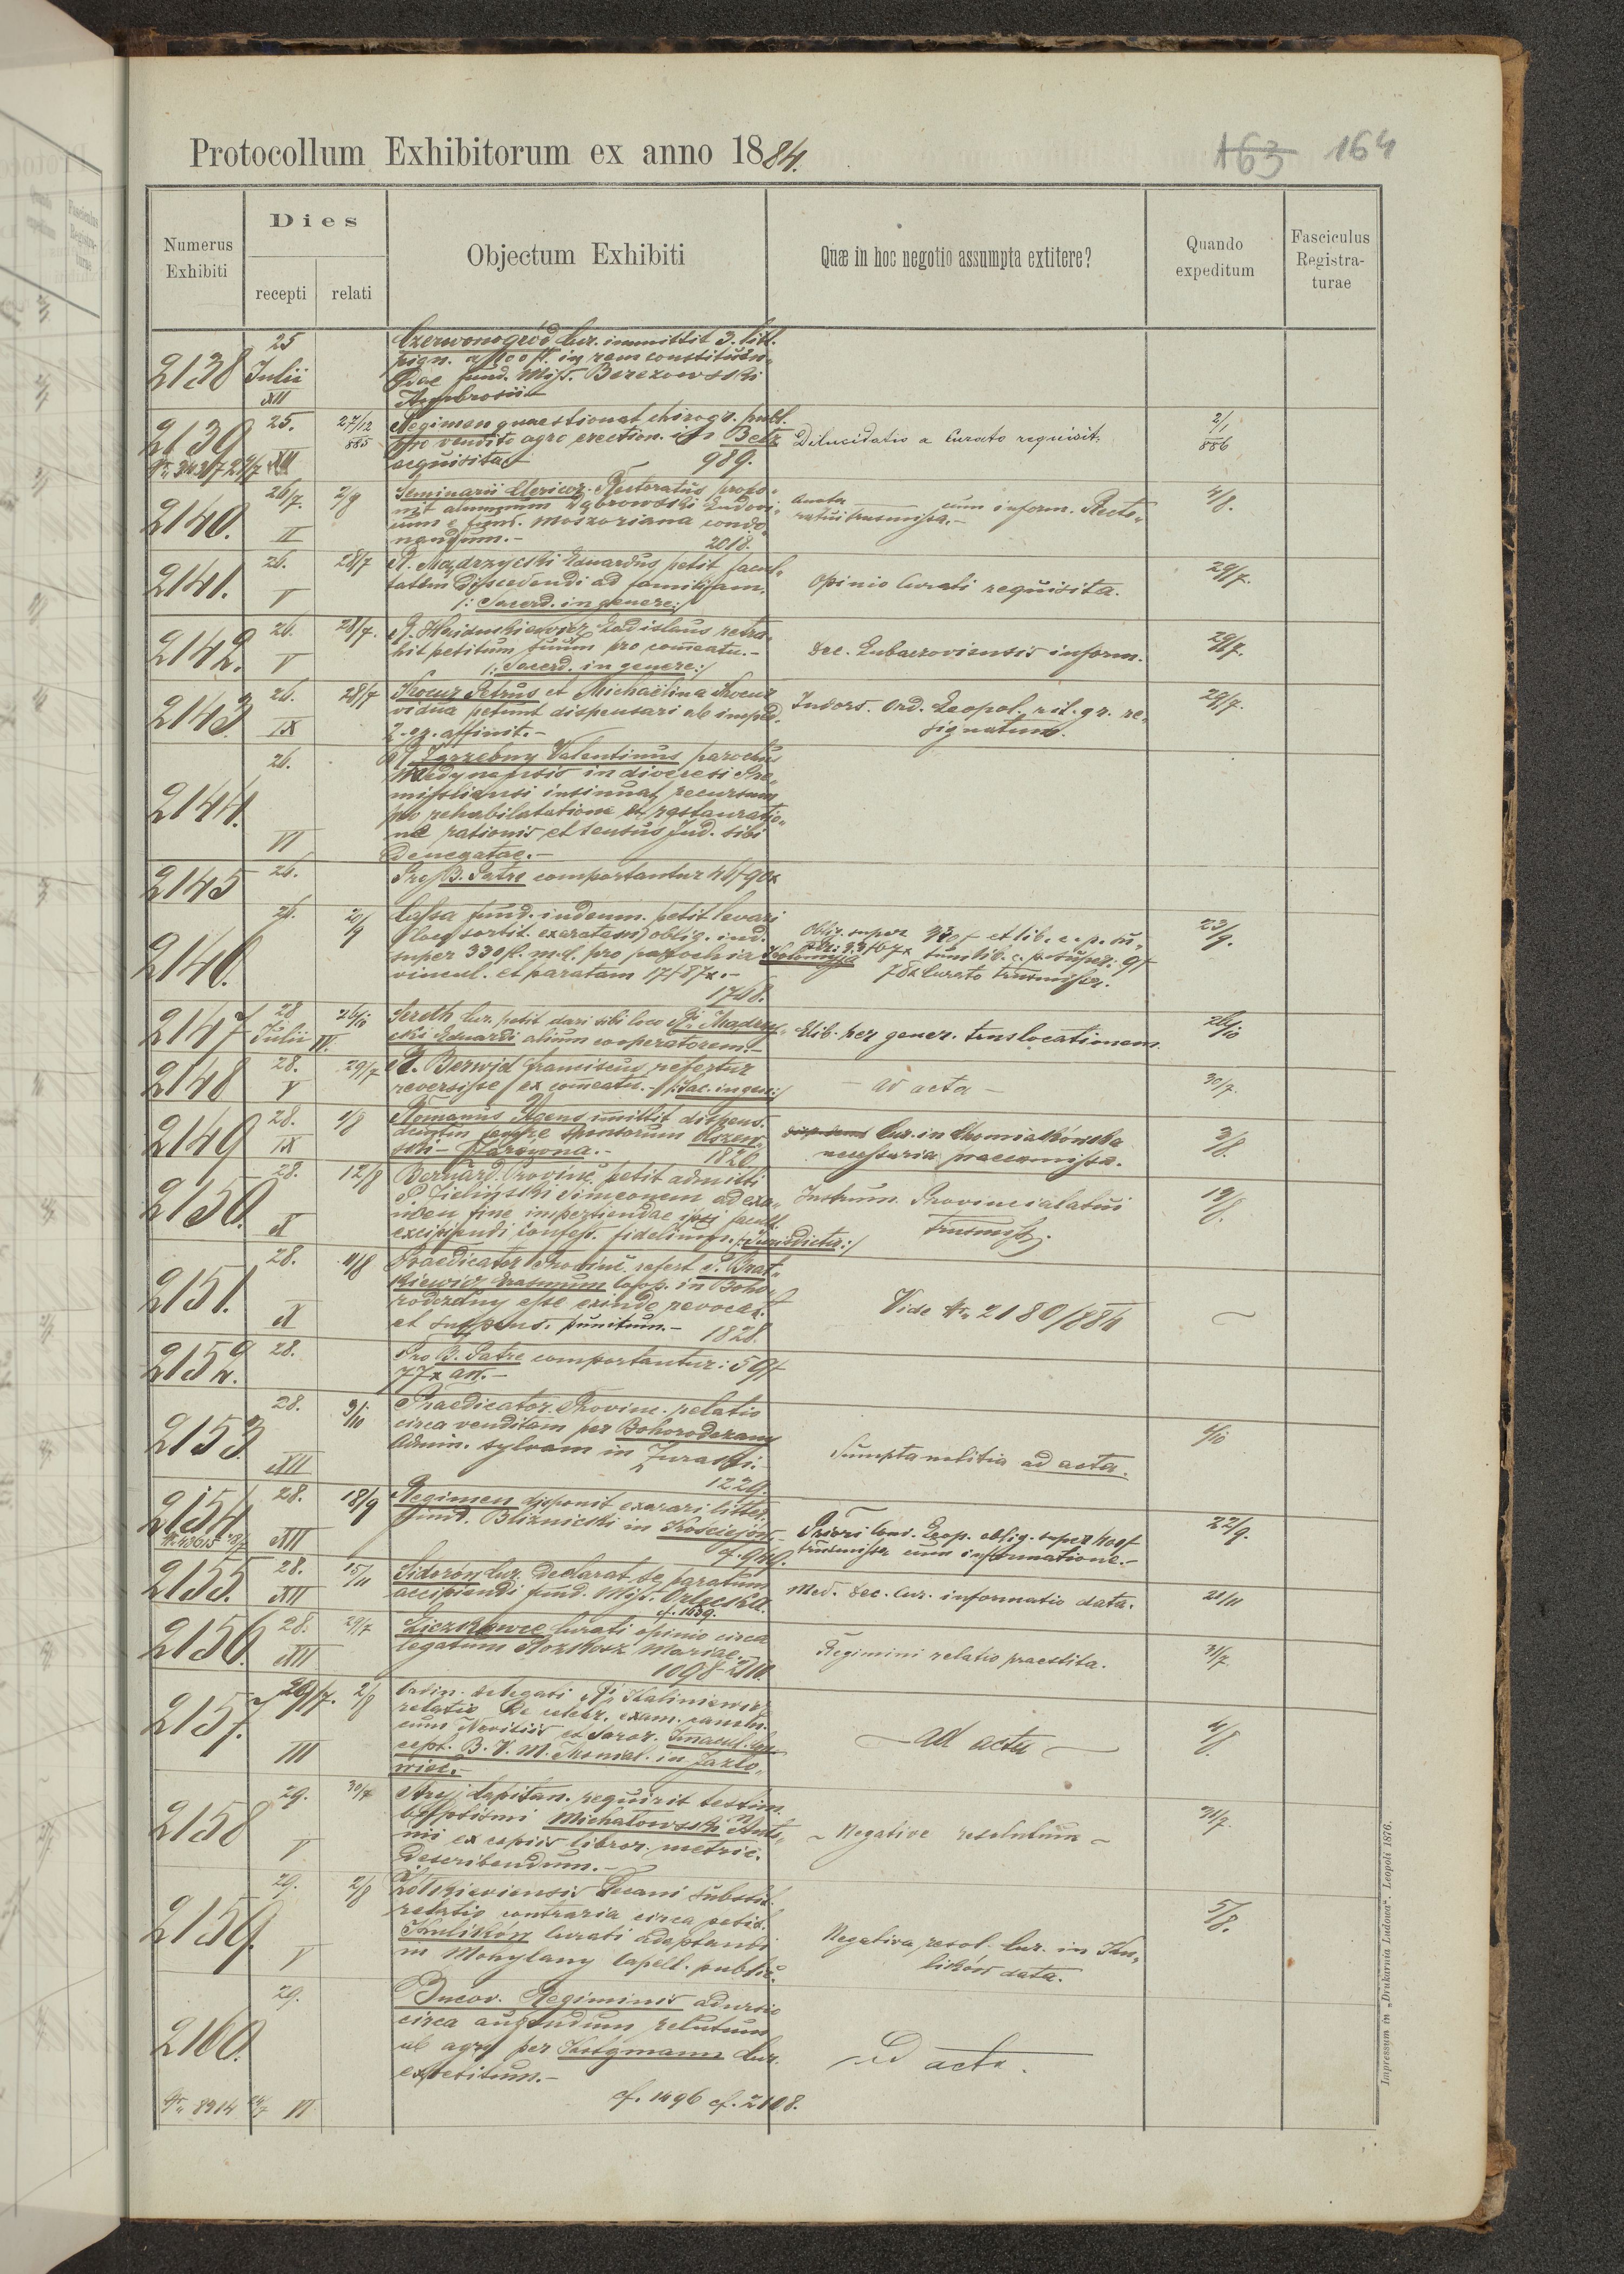 Protocollum Exhibitorum ex anno 1884.
163 164
Numerus Exhibiti
Dies
recepti
relati
Objectum Exhibiti
Quæ in hoc negotio assumpta extitere?
Quando expeditum
Fasciculus Registra-
turae
2138
25
Julii
XII
Czerwonogród Cur. immittit 3. litt.
pign. a 100 fl. in rem constituen„
dae fund. Miss. Berezowski
Ambrosii
2139
25.
XII
27/12
885
Regimen quaestionat chirogr. publ.
pro vendito agro erection. in Betz
acquisita
989.
Dilucidatio a Curato requisit.
2/1
886
2140.
26/7.
II
2/8
Seminarii Clericor. Rectoratus propo„
nit alumnum Dąbrowski Ludovi„
cum e fund. Moszoriana condo„
nandum.-
2018.
cum inform. Recto„
ratui transmissa.-
4/8.
2141.
26.
V
28/7
R. Mądrzycki Eduardus petit facul„
tatem discedendi ad familiam.
/: Sacerd. in genere:/
Opinio Curati requisita.
29/7.
2142.
26.
V
28/7.
Ladislaus retra„
hit petitum suum pro comeatu.-
/: Sacerd. in genere:/
Dec. Lubaczoviensis inform.
29/7.
2143
26.
IX
28/7
Kocur Petrus et Michaëlina Kocur
vidua petunt dispensari ab imped.
2. gr. affinit.-
Indors. Ord. Leopol. rit. gr. re„
signatum.
29/7.
2144.
26.
VI
Jarzebny Valentinus parochus
Medynensis in dioecesi Pre„
missliensi insinuat recursum
pro rehabilitatione et restauratio„
ne rationis et sensus Jud. sibi
denegatae.-
2145
26.
Pro B. Patre comportantur 46f 90x
2146.
26.
20/9
Cassa fund. indemn. petit levari
(loco sortit. exaratam) oblig. ind.
super 330 fl. m.c. pro parochia Kolomyja
vincul. et paratam 17f 87x.-
1748.
Oblig. super 330 f et lib. c. p. su„
78x Curato transmissa.
23/9.
2147
28
Julii
IV.
26/10
Sereth Cur. petit dari sibi loco R. Mądrzy„
cki Eduardi alium cooperatorem.-
Elib. per gener. translocationem.
26/10
2148
28.
V
29/7
R. Berwid Franciscus refertur
reversisse ex comeatu.- /:Sac. in gen:/
- ad acta -
30/7.
2149
28.
IX
1/8
Romanus Agens imittit dispens.
sponsorum Olszew„
ski -
1826
Cur. in Chomiakówka
necessaria praetermissa.
3/8.
2150.
28.
X
12/8
Bernard. Provinc. petit admitti
P. Zieliński Simeonem ad exa„
men fine impertiendae ipsi facult.
excipiendi confess. fidelium. /:Jurisdictio:/
Instrum. Provincialatui
transmiss.
19/8.
2151.
28.
X
4/8
Praedicator Provinc. refert P. Brat„
kiewicz Erasmum Coop. in Boho„
rodczany esse exinde revocat.
et suspens. punitum.-
1828.
Vide Nr. 2180/884
2152.
28.
Pro B. Patre comportantur: 59f
77x an.-
2153
28.
XII
3/10
Praedicator. Provinc. relatio
circa venditam per Bohorodczany
Admin. sylvam in Zuraki.-
1229.
Sumpta notitia ad acta.
5/10
2154
28.
XII
18/9
Regimen disponit exarari litter.
fund. Bliźnicki in Kościejów.
cf. 940.
Priori Conv. Leop. oblig. super 400f
transmissa cum informatione.-
22/9.
2155.
28.
XII
15/11
Sidorów Cur. declarat se paratum
accipiendi fund. Miss. Orlecka.
cf. 1639.
Med. Dec. Cur. informatio data.
21/11
2156.
28.
XII
29/7
Liczkowce Curati opinio circa
legatum Rozkosz Mariae.-
1098-2110.
Regimini relatio praestita.
31/7.
2157.
29/7.
III
2/8
Ordin. Delegati R. Kaliniewicz
relatio de celebr. exam. canon.
cum Novitiis et Soror. Immacul. Con„
cept. B. V. M. Thomal. in Jazło„
wiec.-
- ad acta -
4/8.
2158
29.
V
30/7
Stryj Capitan. requirit testim.
baptismi Michałowski Anto„
nii ex copiis libror. metric.
describendum.-
- Negative resolutum -
31/7.
2159.
29.
V
2/8
Żółkieviensis Decani Substit.
relatio contraria circa petit.
Kulików Curati adaptandi
in Mohylany Capell. public.
Negativa resol. Cur. in Ku„
lików data.
5/8.
2160.
29.
VI
Bucov. Regiminis adversio
circa augendum relutum
ab agro per Kotzmann Cur.
expetitum.-
cf. 1496 cf. 2108.
Ad acta.
Nr. 8914 24/7
Impressum in „Drukarnia Ludowa“. Leopoli 1876.